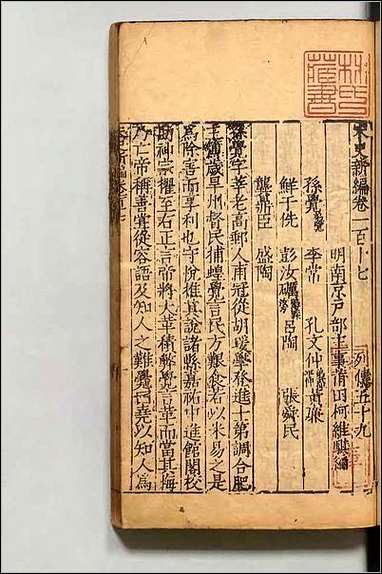 宋史新編卷一百十七
列傳五十九
明南京戶部主事莆田柯維騏編
孫覺 李常 孔文仲 黃廉
鮮于侁 彭汝礪 呂陶 張舜民
龔鼎臣 盛陶
孫覺字莘老高郵人甫冠從胡瑗學登進士第調合肥
主簿歲旱州督民捕蝗覺言民方艱食若以米易之是
為除害而享利也守悅推其說諸縣嘉祐中進館閣校
勘神宗擢至右正言帝將大革積弊覺言革而當其悔
乃亡帝稱善嘗從容語及知人之難覺曰堯以知人為